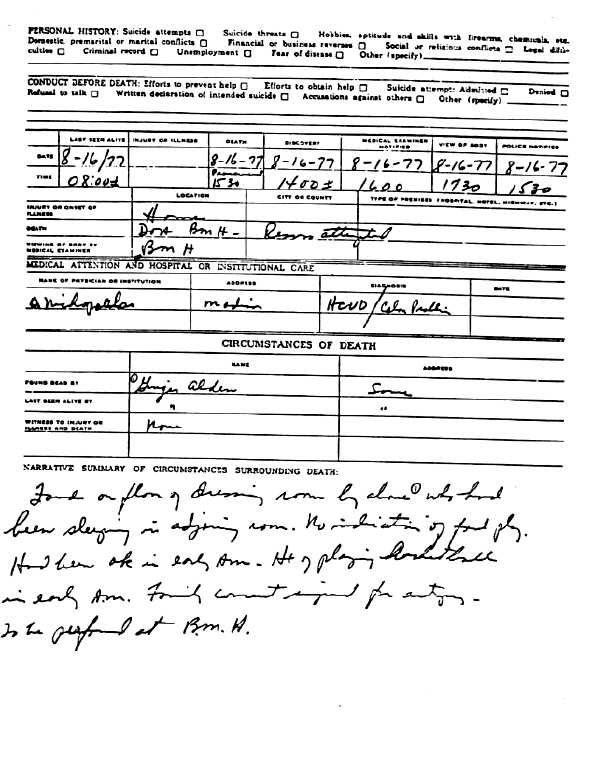 PERSONAL HISTORY: Suicide attempts □ Suicide threats □ Hobbies, aptitude and skills with firearms, chemicals, etc.
Domestic, premarital or marital conflicts □ Financial or business reverses □ Social or religious conflicts □ Legal diffi-
culties □ Criminal record □ Unemployment □ Fear of disease □ Other (specify)
CONDUCT BEFORE DEATH: Efforts to prevent help □ Efforts to obtain help □ Suicide attempt: Admitted □ Denied □
Refusal to talk □ Written declaration of intended suicide □ Accusations against others □ Other (specify)
LAST SEEN ALIVE INJURY OR ILLNESS DEATH DISCOVERY MEDICAL EXAMINER NOTIFIED VIEW OF BODY POLICE NOTIFIED
DATE 8-16/77 8-16-77 8-16-77 8-16-77 8-16-77 8-16-77
TIME 08:00± Pronounced 1530 1400± 1600 1730 1530
LOCATION CITY OR COUNTY TYPE OF PREMISES (HOSPITAL, HOTEL, HIGHWAY, ETC.)
INJURY OR ONSET OF ILLNESS Home
DEATH DOA BMH - Resus attempted
VIEWING OF BODY BY MEDICAL EXAMINER BMH
MEDICAL ATTENTION AND HOSPITAL OR INSTITUTIONAL CARE
NAME OF PHYSICIAN OR INSTITUTION ADDRESS DIAGNOSIS DATE
HCVD/Colon
CIRCUMSTANCES OF DEATH
NAME ADDRESS
FOUND DEAD BY ① Ginger Alden Same
LAST SEEN ALIVE BY " "
WITNESS TO INJURY OR ILLNESS AND DEATH None
NARRATIVE SUMMARY OF CIRCUMSTANCES SURROUNDING DEATH:
Found on floor of dressing room by above ① who had
been sleeping in adjoining room. No indication of foul play.
Had been ok in early AM. - Hx of playing
in early AM. Family consent signed for autopsy -
to be performed at B.M.H.